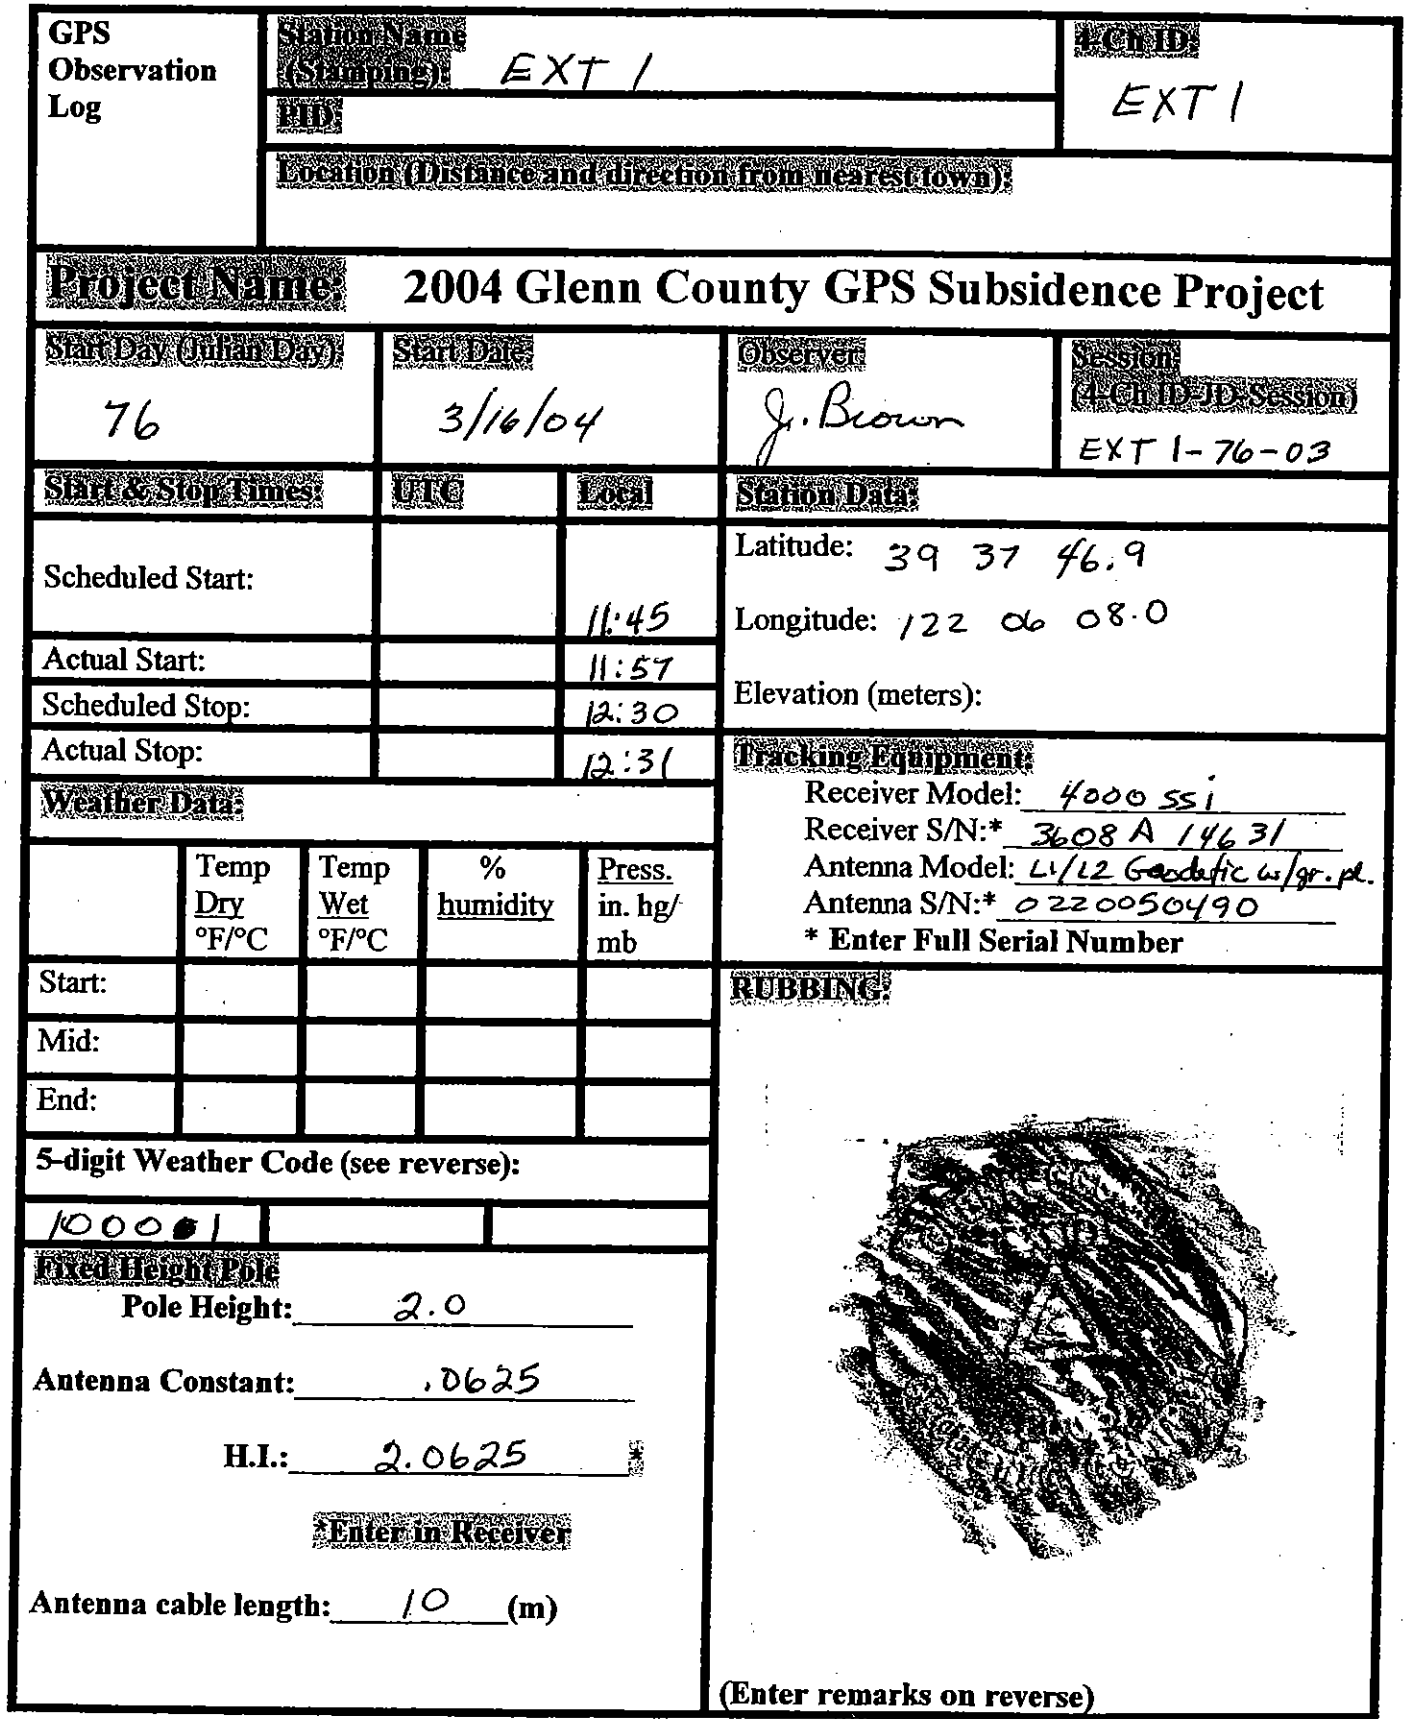 GPS
Observation
Log
Station Name
(Stamping): EXT 1
4-Ch ID:
EXT 1
PID:
Location (Distance and direction from nearest town):
Project Name: 2004 Glenn County GPS Subsidence Project
Start Day (Julian Day):
76
Start Date:
3/16/04
Observer:
Jr. Brown
Session:
(4-Ch ID-JD-Session)
EXT 1-76-03
Start & Stop Times: UTC Local
Scheduled Start: 11:45
Actual Start: 11:57
Scheduled Stop: 12:30
Actual Stop: 12:31
Station Data:
Latitude: 39 37 46.9
Longitude: 122 06 08.0
Elevation (meters):
Tracking Equipment:
Receiver Model: 4000 ssi
Receiver S/N:* 3608 A 14631
Antenna Model: L1/L2 Geodetic w/gr. pl.
Antenna S/N:* 0220050490
* Enter Full Serial Number
Weather Data:
Temp
Dry
°F/°C
Temp
Wet
°F/°C
%
humidity
Press.
in. hg/
mb
Start:
Mid:
End:
5-digit Weather Code (see reverse):
Fixed Height Pole
Pole Height: 2.0
Antenna Constant: .0625
H.I.: 2.0625 *
*Enter in Receiver
Antenna cable length: 10 (m)
RUBBING:
(Enter remarks on reverse)